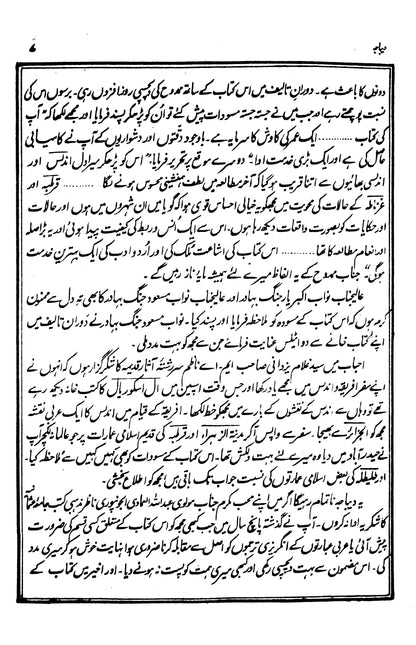 دیباچہ
دونوں کا باعث ہے۔ دورانِ تالیف میں اس کتاب کے ساتھ ممدوح کی دلچسپی روزافزوں رہی۔ برسوں اس کی
نسبت پوچھتے رہے اور جب میں نے جستہ جستہ مسودات پیش کئے تو اُن کو پڑھکر پسند فرمایا اور مجھے لکھا کہ آپ
کی کتاب ......... ایک عمر کی کاوش کا سرمایہ ہے۔ باوجود دقتوں اور دشواریوں کے آپ نے کامیابی
حاصل کی ہے اور ایک بڑی خدمت ادا" دوسرے موقع پر تحریر فرمایا۔ "اس کو پڑھکر میرا دل اندلس اور
اندلسی بھائیوں سے اتنا قریب ہوگیا کہ آخر مطالعہ میں لطف ہمنشینی محسوس ہونے لگا ......... قرطبہ اور
غرناطہ کے حالات کی محویت میں مجھکو یہ خیالی احساس قوی ہوا کہ گویا میں ان شہروں میں ہوں اور حالات
اور حکایات کو بصورت واقعات دیکھ رہا ہوں۔ اس سے ایک اُنس و ربط کی کیفیت پیدا ہوئی اور یہ بڑا صلہ
اور انعام مطالعہ کا تھا ......... اس کتاب کی اشاعت ملک کی اور اُردو ادب کی ایک بہترین خدمت
ہوگی" جناب ممدوح کے یہ الفاظ میرے لئے ہمیشہ مایۂ ناز رہیں گے۔
عالیجناب نواب اکبر یار جنگ بہادر اور عالیجناب نواب مسعود جنگ بہادر کا بھی تہ دل سے ممنون
کرم ہوں کہ اس کتاب کے مسودہ کو ملاحظہ فرمایا اور پسند کیا۔ نواب مسعود جنگ بہادر نے دوران تالیف میں
اپنے کتاب خانے سے دو اٹلس عنایت فرمائے جن سے مجھکو بہت مدد ملی۔
احباب میں سید غلام یزدانی صاحب ایم۔ اے ناظم سررشتۂ آثار قدیمہ کا شکرگزار ہوں کہ انہوں نے
اپنے سفر افریقہ و اندلس میں مجھے یاد رکھا اور جس وقت اسپین میں ال اسکوریال کا کتب خانہ دیکھ رہے
تھے تو وہاں سے اندلس کے نقشوں کے بارے میں مجھکو خط لکھا۔ افریقہ کے قیام میں اندلس کا ایک عربی نقشہ
مجھ کو الجزائر سے بھیجا۔ سفر سے واپس آکر مدینۃ الزہراء اور قرطبہ کی قدیم اسلامی عمارات پر جو عالمانہ لکچر آپ
نے حیدرآباد میں دیا وہ میرے لئے بہت دلکش تھا۔ اس کتاب کے مسودات کو بھی کہیں کہیں سے ملاحظہ کیا۔
اور طلیطلہ کی بعض اسلامی عمارتوں کی نسبت جواب تک باقی ہیں مجھ کو اطلاع بخشی۔
یہ دیباچہ ناتمام رہیگا اگر میں اپنے محب مکرم جناب مولوی عبداللہ العمادی ناظر مذہبی کتب جامعۂ عثمانیہ
کا شکریہ ادا نہ کروں۔ آپ نے گذشتہ پانچ سال میں جب کبھی مجھ کو اس کتاب کے متعلق کسی قسم کی ضرورت
پیش آئی یا عربی عبارتوں کے انگریزی ترجموں کو اصل سے مقابلہ کرنا ضروری ہوا نہایت خوش ہوکر میری مدد
کی۔ اس مضمون سے بہت دلچسپی رکھی اور کبھی میری ہمت کو پست نہ ہونے دیا۔ اور اخیر میں کتاب کے